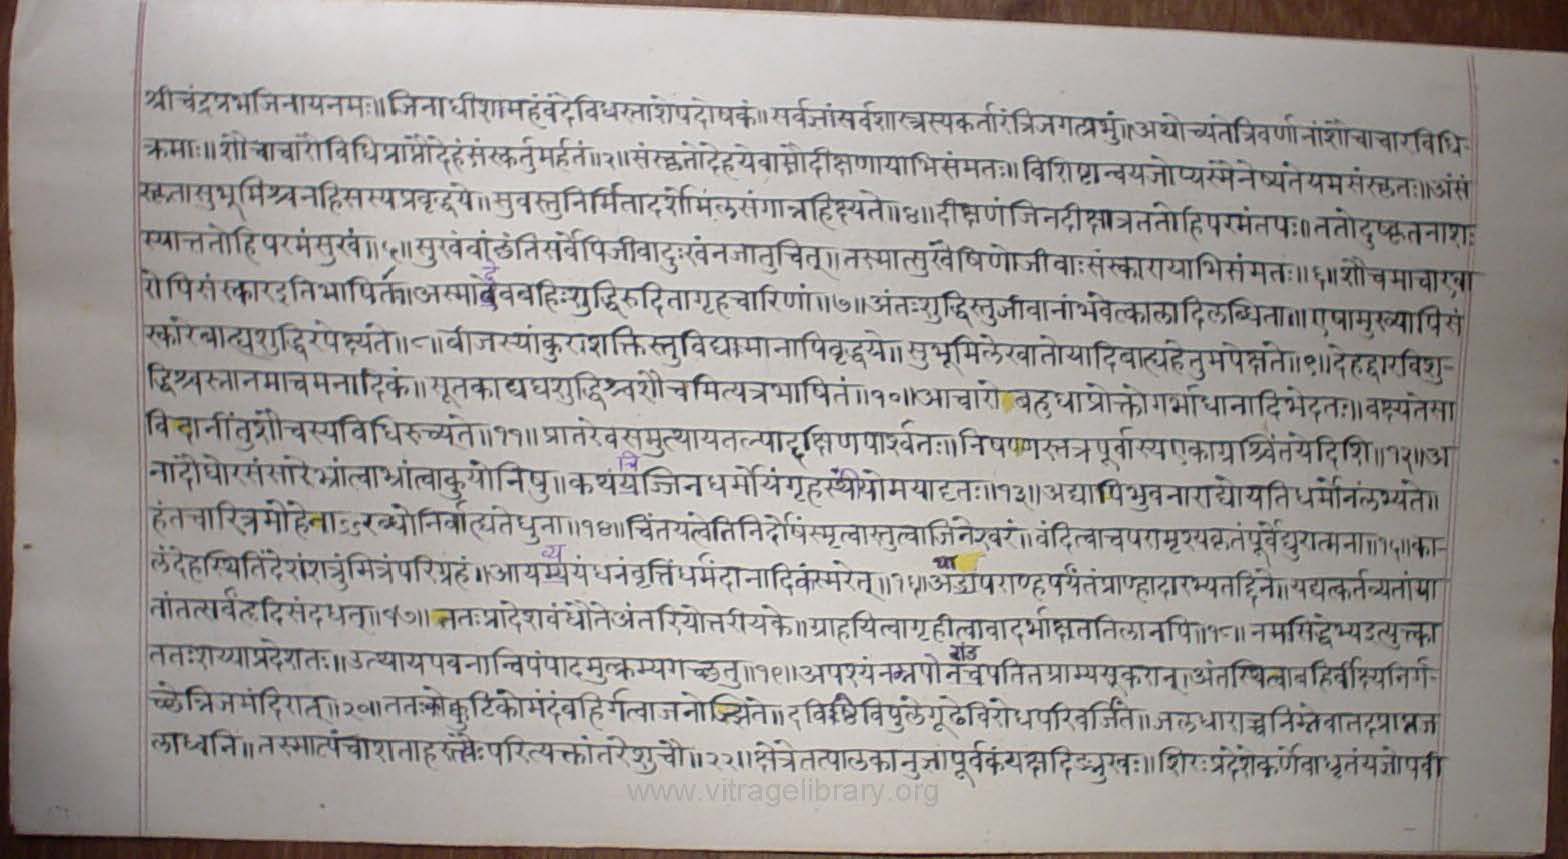 श्रीचंद्रप्रभजिनायनमः॥जिनाधीशमहंवंदेविधस्ताशेषदोषकं॥सर्वज्ञंसर्वशास्त्रस्यकर्तारंत्रिजगत्प्रभुं॥अथोच्यतेत्रिवर्णानांशौचाचारविधि-
क्रमाः॥शौचाचारोविधिप्राप्तौदेहंसंस्कर्तुमर्हतं॥२॥संस्कृतोदेहयेवासौदीक्षणायाभिसंमतः॥विशिष्टान्वयजोप्यस्मैनेष्यंतेयमसंस्कृतः॥असं
स्कृतासुभूमिश्चनहिसस्यप्रवृद्धये॥सुवस्तुनिर्मितादर्शोमिलसंगान्नहिक्ष्यते॥४॥दीक्षणंजिनदीक्षात्रततोहिपरमंतपः॥ततोदुष्कृतनाशः
स्यात्ततोहिपरमंसुखं॥५॥सुखंवांछंतिसर्वेपिजीवादुःखंनजातुचित्॥तस्मात्सुखैषिणोजीवाःसंस्कारायाभिसंमतः॥६॥शौचमाचारवा
रोपिसंस्कारइतिभाषितं॥अस्मादेवबहिःशुद्धिरुदितागृहचारिणां॥७॥अंतःशुद्धिस्तुजीवानांभवेत्कालादिलब्धिता॥एषामुख्यापिसं
स्कारेबाह्यशुद्धिरपेक्ष्यंते॥८॥बीजस्यांकुरशक्तिस्तुविद्यमानापिवृद्धये॥सुभूमिलेखातोयादिबाह्यहेतुमपेक्षते॥९॥देहद्वारविशु-
द्धिश्चस्नानमाचमनादिकं॥सूतकाद्यघशुद्धिश्चशौचमित्यत्रभाषितं॥१०॥आचारोबहुधाप्रोक्तोगर्भाधानादिभेदतः॥वक्ष्यतेसा
विदानींतुशौचस्यविधिरुच्यते॥११॥प्रातरेवसमुत्थायतल्पाद्दक्षिणपार्श्वतः॥निषण्णस्तत्रपूर्वास्यएकाग्रश्चिंतयेदिशि॥१२॥अ
नादौघोरसंसारेभ्रांत्वाभ्रांत्वाकुयोनिषु॥कथंचिज्जिनधर्मोयंगृहस्थीयोमयादृतः॥१३॥अद्यापिभुवनाराद्योयतिधर्मोनलभ्यते॥
हंतचारित्रमोहेनाऽऽरब्धोनिर्वाह्यतेधुना॥१४॥चिंतयत्वेतिनिर्दोषंस्मृत्वास्तुत्वाजिनेश्वरं॥वंदित्वाचपरामृश्यकृतंपूर्वेद्युरात्मना॥१५॥का-
लंदेहस्थितिंदेशंशत्रुंमित्रंपरिग्रहं॥आयव्ययंधनंवृत्तिंधर्मदानादिकंस्मरेत्॥१६॥अथापराण्हपर्यंतंप्राण्हादारभ्यतद्दिने॥यद्यत्कर्तव्यतांया
तांतत्सर्वंहृदिसंदधत्॥१७॥ततःप्रादेशबंधौतेअंतरियोत्तरीयके॥ग्राहयित्वागृहीत्वावादर्भाक्षततिलानपि॥१८॥नमसिद्धेभ्यइत्युक्त्का
ततःशय्याप्रदेशतः॥उत्थायपवनान्विपंपादमुत्क्रम्यगच्छतु॥१९॥अपश्यंनग्नपोगंडपतितग्राम्यसूकरान्।अंतस्थित्वाबहिर्वीक्ष्यनिर्ग-
च्छेन्निजमंदिरात्॥२०॥ततःकोकुटिकोमंदंबहिर्गत्वाजनोज्झिते॥दविष्ठेविपुलेगूढेविरोधपरिवर्जिते॥जलधाराच्चनिम्नेवातदप्राप्तज
लाध्वनि॥तस्मात्पंचाशताहस्तैःपरित्यक्तांतरेशुचौ॥२२॥क्षेत्रेतत्पालकानुज्ञापूर्वकंयक्षदिङ्मुखः॥शिरःप्रदेशेकर्णेवाधृतंयज्ञोपवी
www.vitragelibrary.org